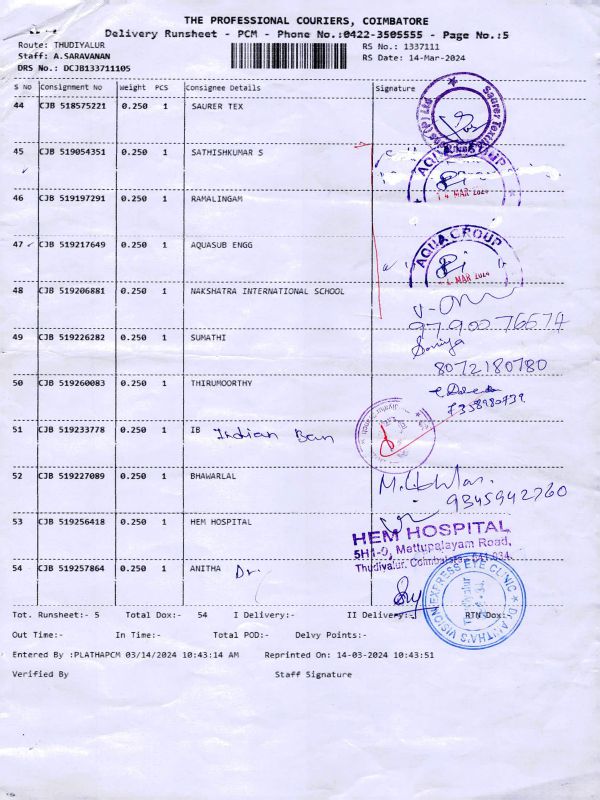 THE PROFESSIONAL COURIERS, COIMBATORE
Delivery Runsheet - PCM - Phone No.:0422-3505555 - Page No.:5
Route: THUDIYALUR
RS No.: 1337111
Staff: A.SARAVANAN
RS Date: 14-Mar-2024
DRS No.: DCJB133711105
S No Consignment No Weight PCS Consignee Details Signature
44 CJB 518575221 0.250 1 SAURER TEX
45 CJB 519054351 0.250 1 SATHISHKUMAR S
46 CJB 519197291 0.250 1 RAMALINGAM
MAR 2024
47 CJB 519217649 0.250 1 AQUASUB ENGG
AQUA GROUP
MAR 2024
48 CJB 519206881 0.250 1 NAKSHATRA INTERNATIONAL SCHOOL
49 CJB 519226282 0.250 1 SUMATHI
Soniya
8072180780
50 CJB 519260083 0.250 1 THIRUMOORTHY
51 CJB 519233778 0.250 1 IB Indian Ban
52 CJB 519227089 0.250 1 BHAWARLAL
9345942760
53 CJB 519256418 0.250 1 HEM HOSPITAL
HEM HOSPITAL
Mettupalayam Road,
Thudivalur, Coimbatore
54 CJB 519257864 0.250 1 ANITHA Dr.
VISION EXPRESS EYE CLINIC
Tot. Runsheet:- 5 Total Dox:- 54 I Delivery:- II Delivery:- RTN Dox:
Out Time:- In Time:- Total POD:- Delvy Points:-
Entered By :PLATHAPCM 03/14/2024 10:43:14 AM Reprinted On: 14-03-2024 10:43:51
Verified By Staff Signature